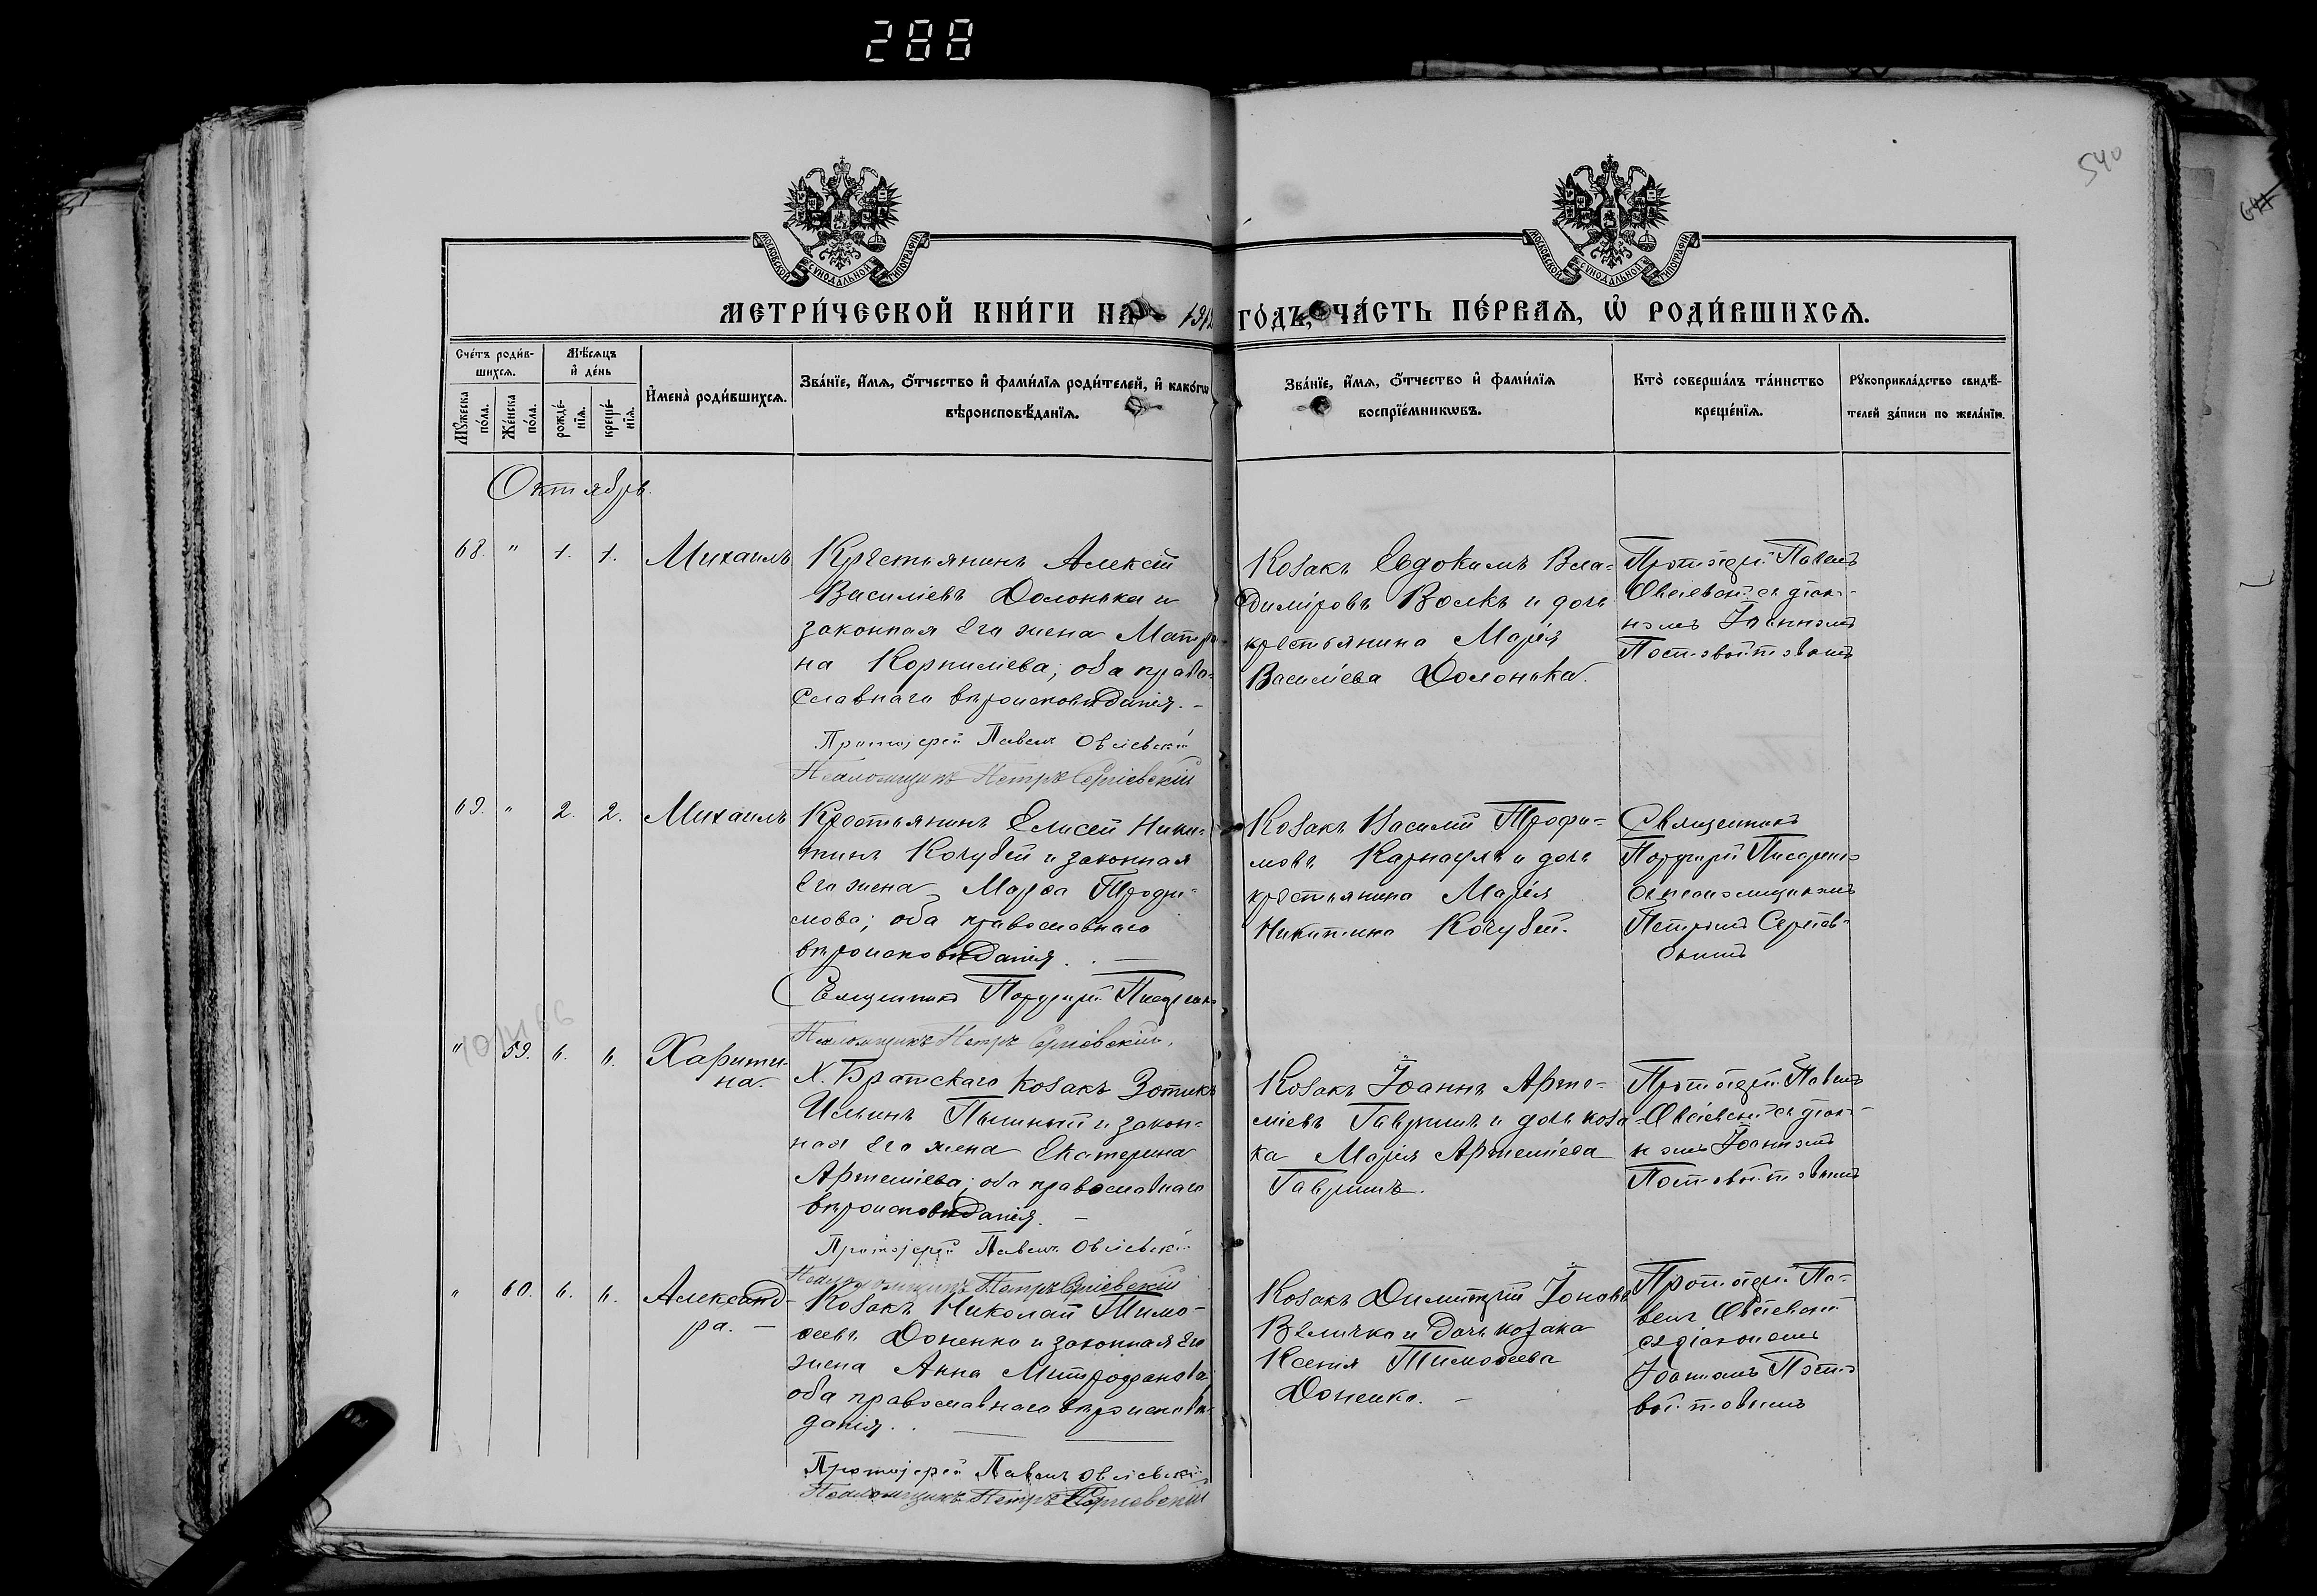 288
540
МОСКОВСКОЙ СѴНОДАЛЬНОЙ ТИПОГРАФІИ
МОСКОВСКОЙ СѴНОДАЛЬНОЙ ТИПОГРАФІИ
МЕТРИ́ЧЕСКОЙ КНИ́ГИ НА 1912 ГО́ДЪ, ЧА́СТЬ ПЕ́РВАѦ, Ѡ РОДИ́ВШИХСѦ.
Сче́тъ роди́в-
шихсѧ.
Мꙋ́жеска по́ла.
Же́нска по́ла.
Мѣ́сѧцъ
и҆ де́нь
рожде́-
нїѧ.
креще́-
нїѧ.
И҆мена̀ роди́вшихсѧ.
Зва́нїе, и҆́мѧ, ѻ҆́тчество и҆ фами́лїѧ роди́телей, и҆ како́гѡ
вѣроисповѣ́данїѧ.
Зва́нїе, и҆́мѧ, ѻ҆́тчество и҆ фами́лїѧ
воспрїе́мникѡвъ.
Кто̀ соверша́лъ та́инство
креще́нїѧ.
Рꙋкоприкла́дство свидѣ́-
телей за́писи по жела́нїю.
Октябрь.
68. " 1. 1. Михаилъ
Крестьянинъ Алексій
Василіевъ Долонька и
законная его жена Матро-
на Корниліева; оба право-
славнаго вѣроисповѣданія. –
Протоіерей Павелъ
Псаломщикъ Петръ Сергіевскій
Козакъ Евдокимъ Вла-
диміровъ Волкъ и дочь
крестьянина Марія
Василіева Долонька.
Протоіерей Павелъ
съ діако-
номъ Іоанномъ
Постовойтовымъ
69. " 2. 2. Михаилъ
Крестьянинъ Елисей Ники-
тинъ Кочубей и законная
его жена Марѳа Трофи-
мова; оба православнаго
вѣроисповѣданія. –
Священникъ Порфирій Писаренко
Псаломщикъ Петръ Сергіевскій.
Козакъ Василій Трофи-
мовъ Карнаухъ и дочь
крестьянина Марія
Никитина Кочубей.
Священникъ
Порфирій Писаренко
съ псаломщикомъ
Петромъ Сергіев-
скимъ
" 59. 6. 6. Харити-
на.
Х. Братскаго козакъ Зотикъ
Ильинъ Пышный и закон-
ная его жена Екатерина
Артеміева; оба православнаго
вѣроисповѣданія. –
Протоіерей Павелъ
Псаломщикъ Петръ Сергіевскій
Козакъ Іоаннъ Арте-
міевъ Гавришъ и дочь коза-
ка Марія Артеміева
Гавришъ.
Протоіерей Павелъ
съ діако-
номъ Іоанномъ
Постовойтовымъ
" 60. 6. 6. Александ-
ра. –
Козакъ Николай Тимо-
ѳеевъ Доненко и законная его
жена Анна Митрофанова;
оба православнаго вѣроисповѣ-
данія. –
Протоіерей Павелъ
Псаломщикъ Петръ Сергіевскій
Козакъ Димитрій Іоновъ
Величко и дочь козака
Ксенія Тимоѳеева
Доненко. –
Протоіерей Па-
велъ
съ діакономъ
Іоанномъ Посто-
войтовымъ